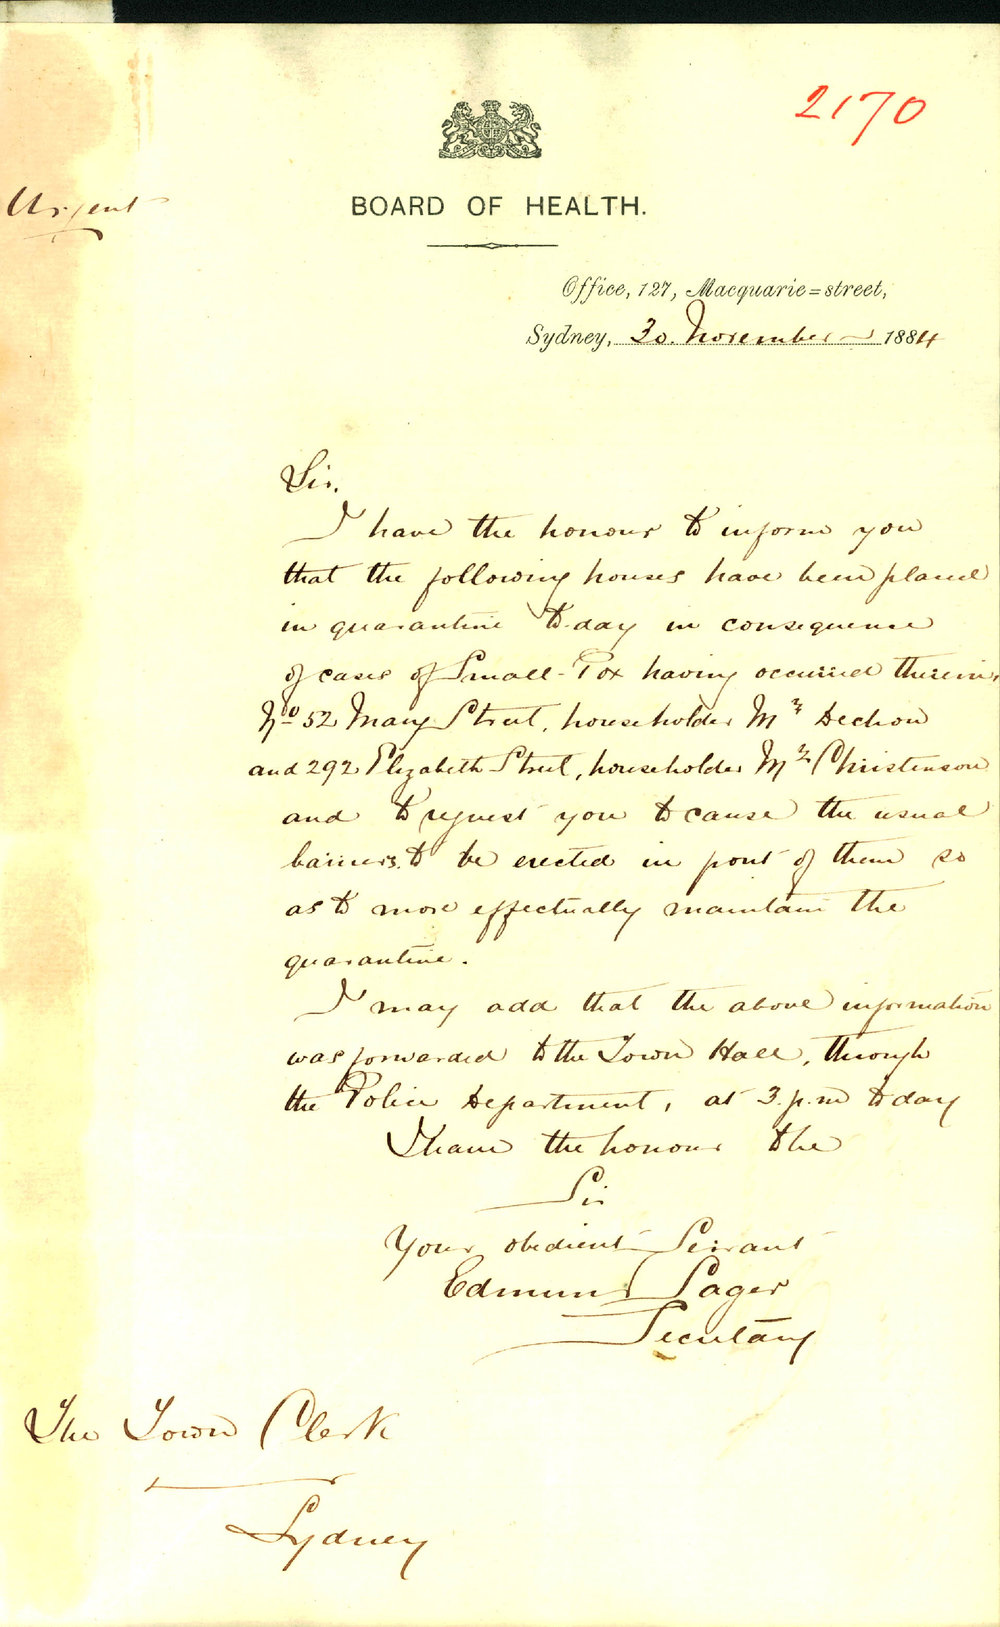 2170
Urgent
BOARD OF HEALTH.
Office, 127, Macquarie=street,
Sydney, 30. November 1884
Sir,
I have the honour to inform you
that the following houses have been placed
in quarantine to-day in consequence
of cases of Small-Pox having occurred therein,
No 52 Mary Street, householder Mr Dechow
and 292 Elizabeth Street, householder Mr Christenson
and to request you to cause the usual
barriers to be erected in front of them so
as to more effectually maintain the
quarantine.
I may add that the above information
was forwarded to the Town Hall, through
the Police Department, at 3.p.m to day
I have the honour to be
Sir
Your obedient Servant
Edmund Sager
Secretary
The Town Clerk
Sydney